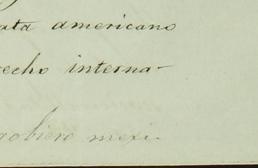 ata americano
echo interna-
obierno mexi-